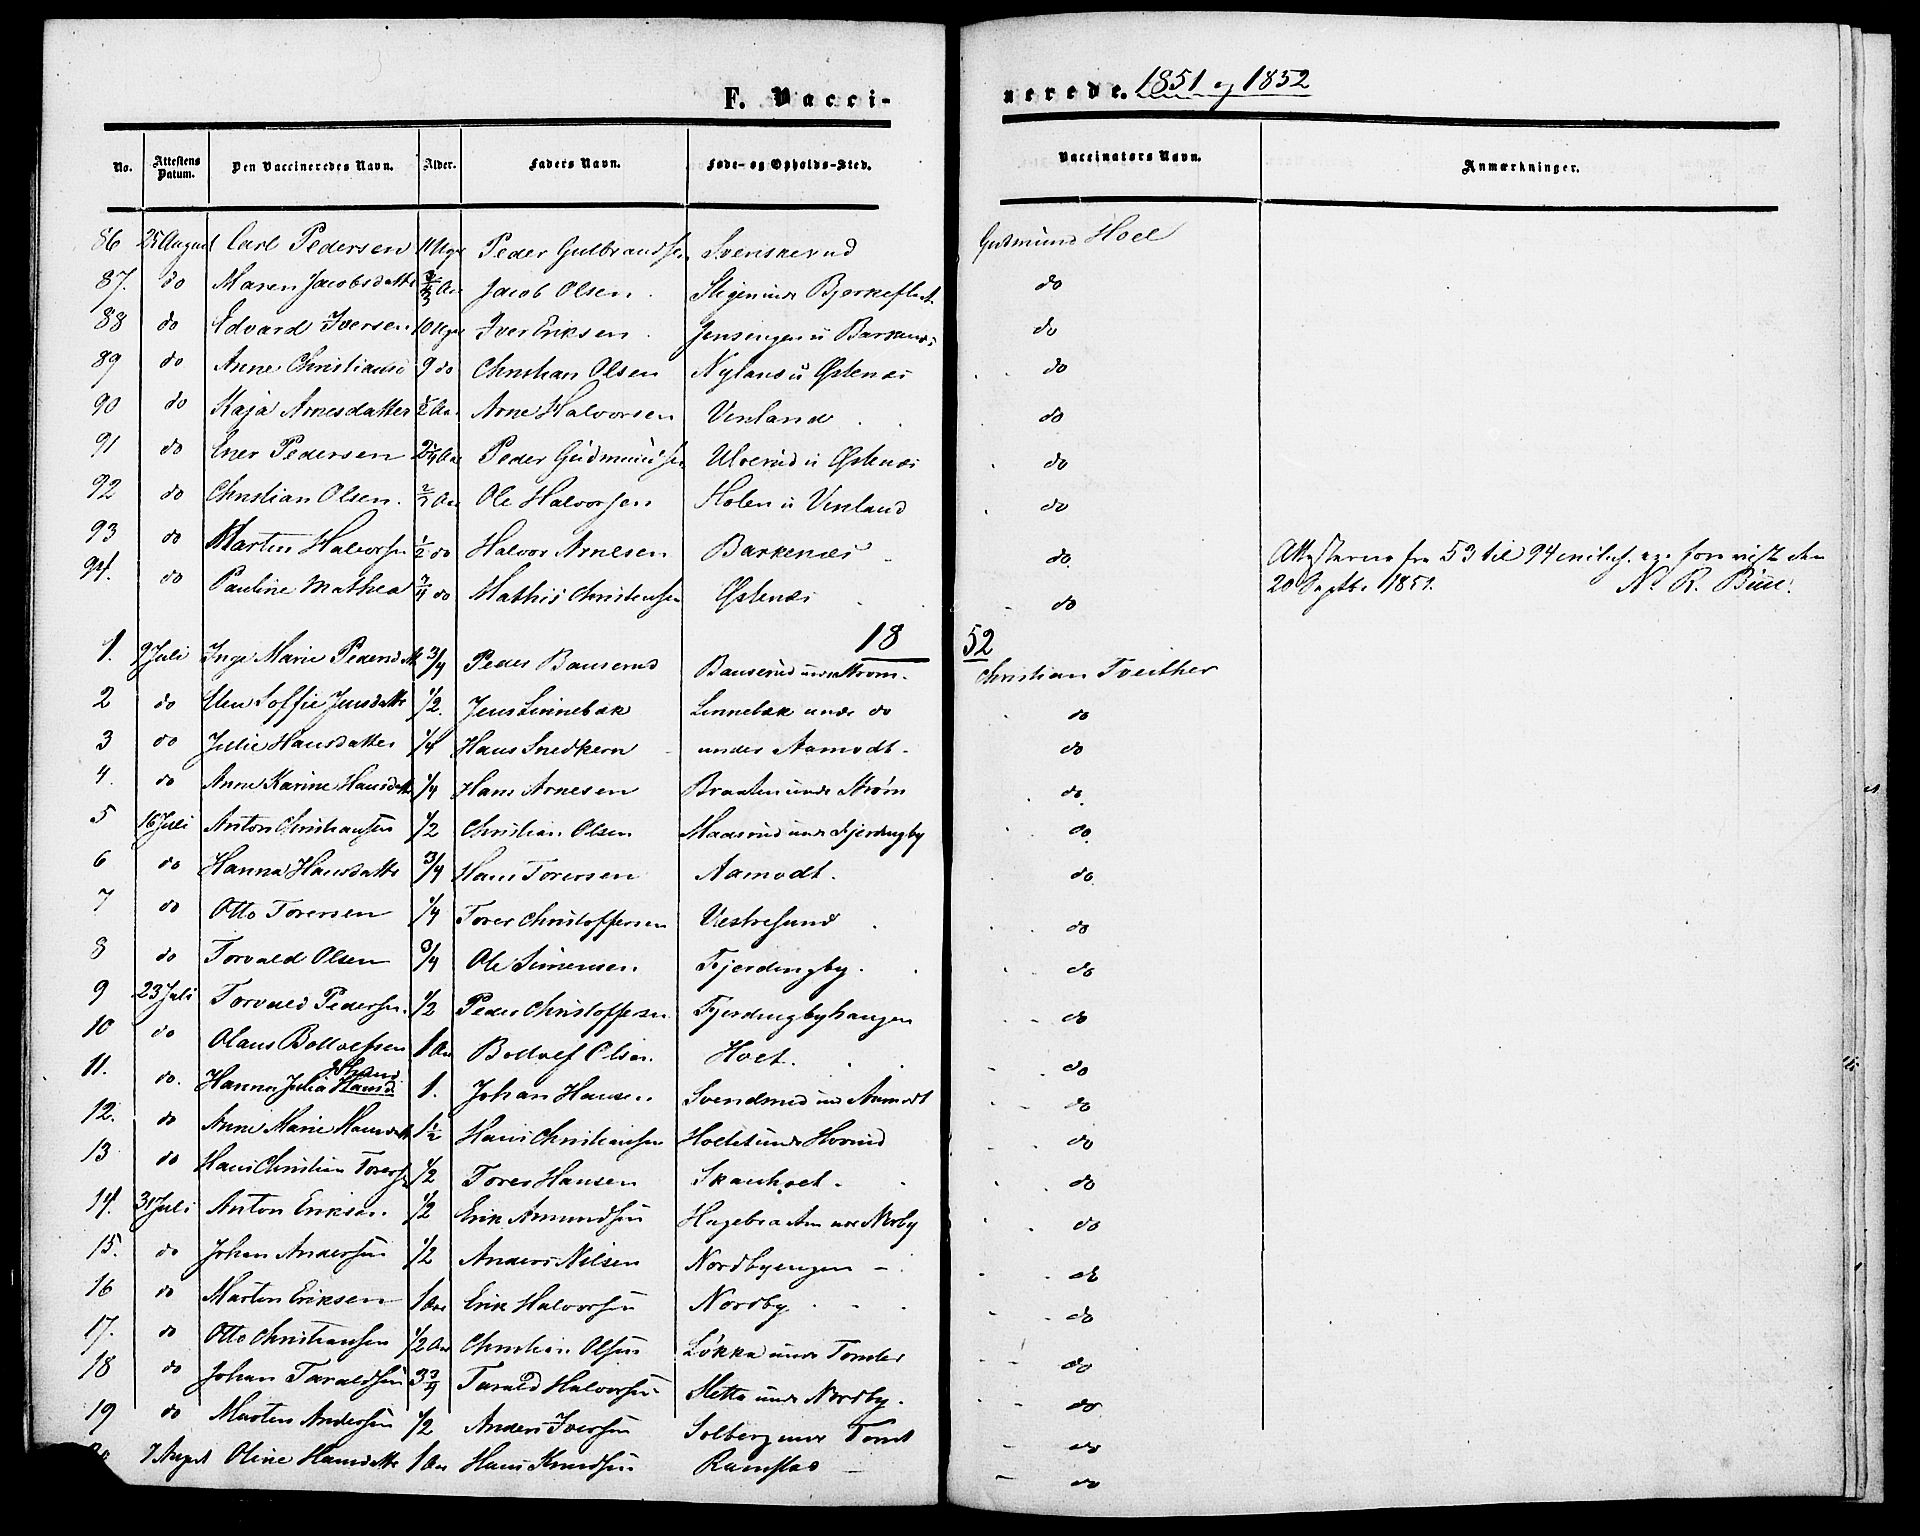 F. Vacci-nerede. 1851 og 1852
No. Attestens Datum. Den Vaccineredes Navn. Alder. Faders Navn. Føde- og Opholds-Sted. Vaccinators Navn. Anmærkninger.
86 25 August Carl Pedersen 11 Peder Gulbrandsen Svenskerud Gudmund Hoel
87. do Maren Jacobsdatter Jacob Olsen do
88 do Edvard Iversen 10 Iver Eriksen do
89 do Anne Christians 9 do Christian Olsen Nyland u Østenæs do
90 do Kaja Arnesdatter Arne Halvorsen Venland do
91 do Ener Pedersen Peder Gudmundsen Ulverud u Østenæs do
92 do Christian Olsen. Ole Halvorsen Holen u Venland do
93 do Martin Halvorsen 1/2 do Halvor Arnesen Barkenæs do. Attesterne fra 53 til 94 inclus. ere foreviist den
94. do Pauline Mathea 3/4 do Mathis Christensen Østenæs do 20 Septbr 1851. N. R. Bull.
1852
1. 9 Juli Inge Marie Pedersd 3/4 Peder Bauserud Bauserud under Strøm. Christian Tveither
2 do Elen Soffie Jensdatter 1/2. Jens Linnebæk Linnebæk under do do
3 do Julie Hansdatter 1/4 Hans Snedkern under Aamodt. do
4. do Anne Karine Hansdatter 1/4 Hans Arnesen Braaten under Strøm do.
5 16 Juli Anton Christiansen 1/2 Christian Olsen Maasrud under Fjerdingby do.
6 do Hanna Hansdatter 3/4 Hans Torersen Aamodt. do.
7 do Otto Torersen 1/4 Torer Christoffersen Vestresund do
8 do Torvald Olsen 3/4 Ole Simensen Fjerdingby. do
9 23 Juli Torvald Pedersen. 1/2 Peder Christoffersen Fjerdingbyhaugen do
10 do Olaus Bottolfsen 1 Aar Bottolf Olsen Hoet. do
11. do. Hanna Julia Hansd Johans 1. Johan Hansen Svendsrud under Aamodt do
12. do Anne Marie Hansdatter 1 1/2 Hans Christiansen under Hovind do
13 do Hans Christian Torersen 1/2 Torer Hansen Skauhoet. do
14. 31 Juli Anton Eriksen. 1/2 Erik Amundsen Hagebraaten under Norby do
15. do Johan Andersen 1/2 Anders Nilsen Nordbyengen do
16 do Martin Eriksen 1 Aar Erik Halvorsen Nordby do
17. do Otto Christiansen 1/2 Aar Christian Olsen Løkka under Tomter do
18 do Johan Taraldsen 3 3/4 Tarald Halvorsen Sletta under Nordby. do
19 do Martin Andersen 1/2 Anders Iversen Solberg under Tomt do
7 August Oline Hansdatter 1 Aar Hans Knudsen Ramstad do